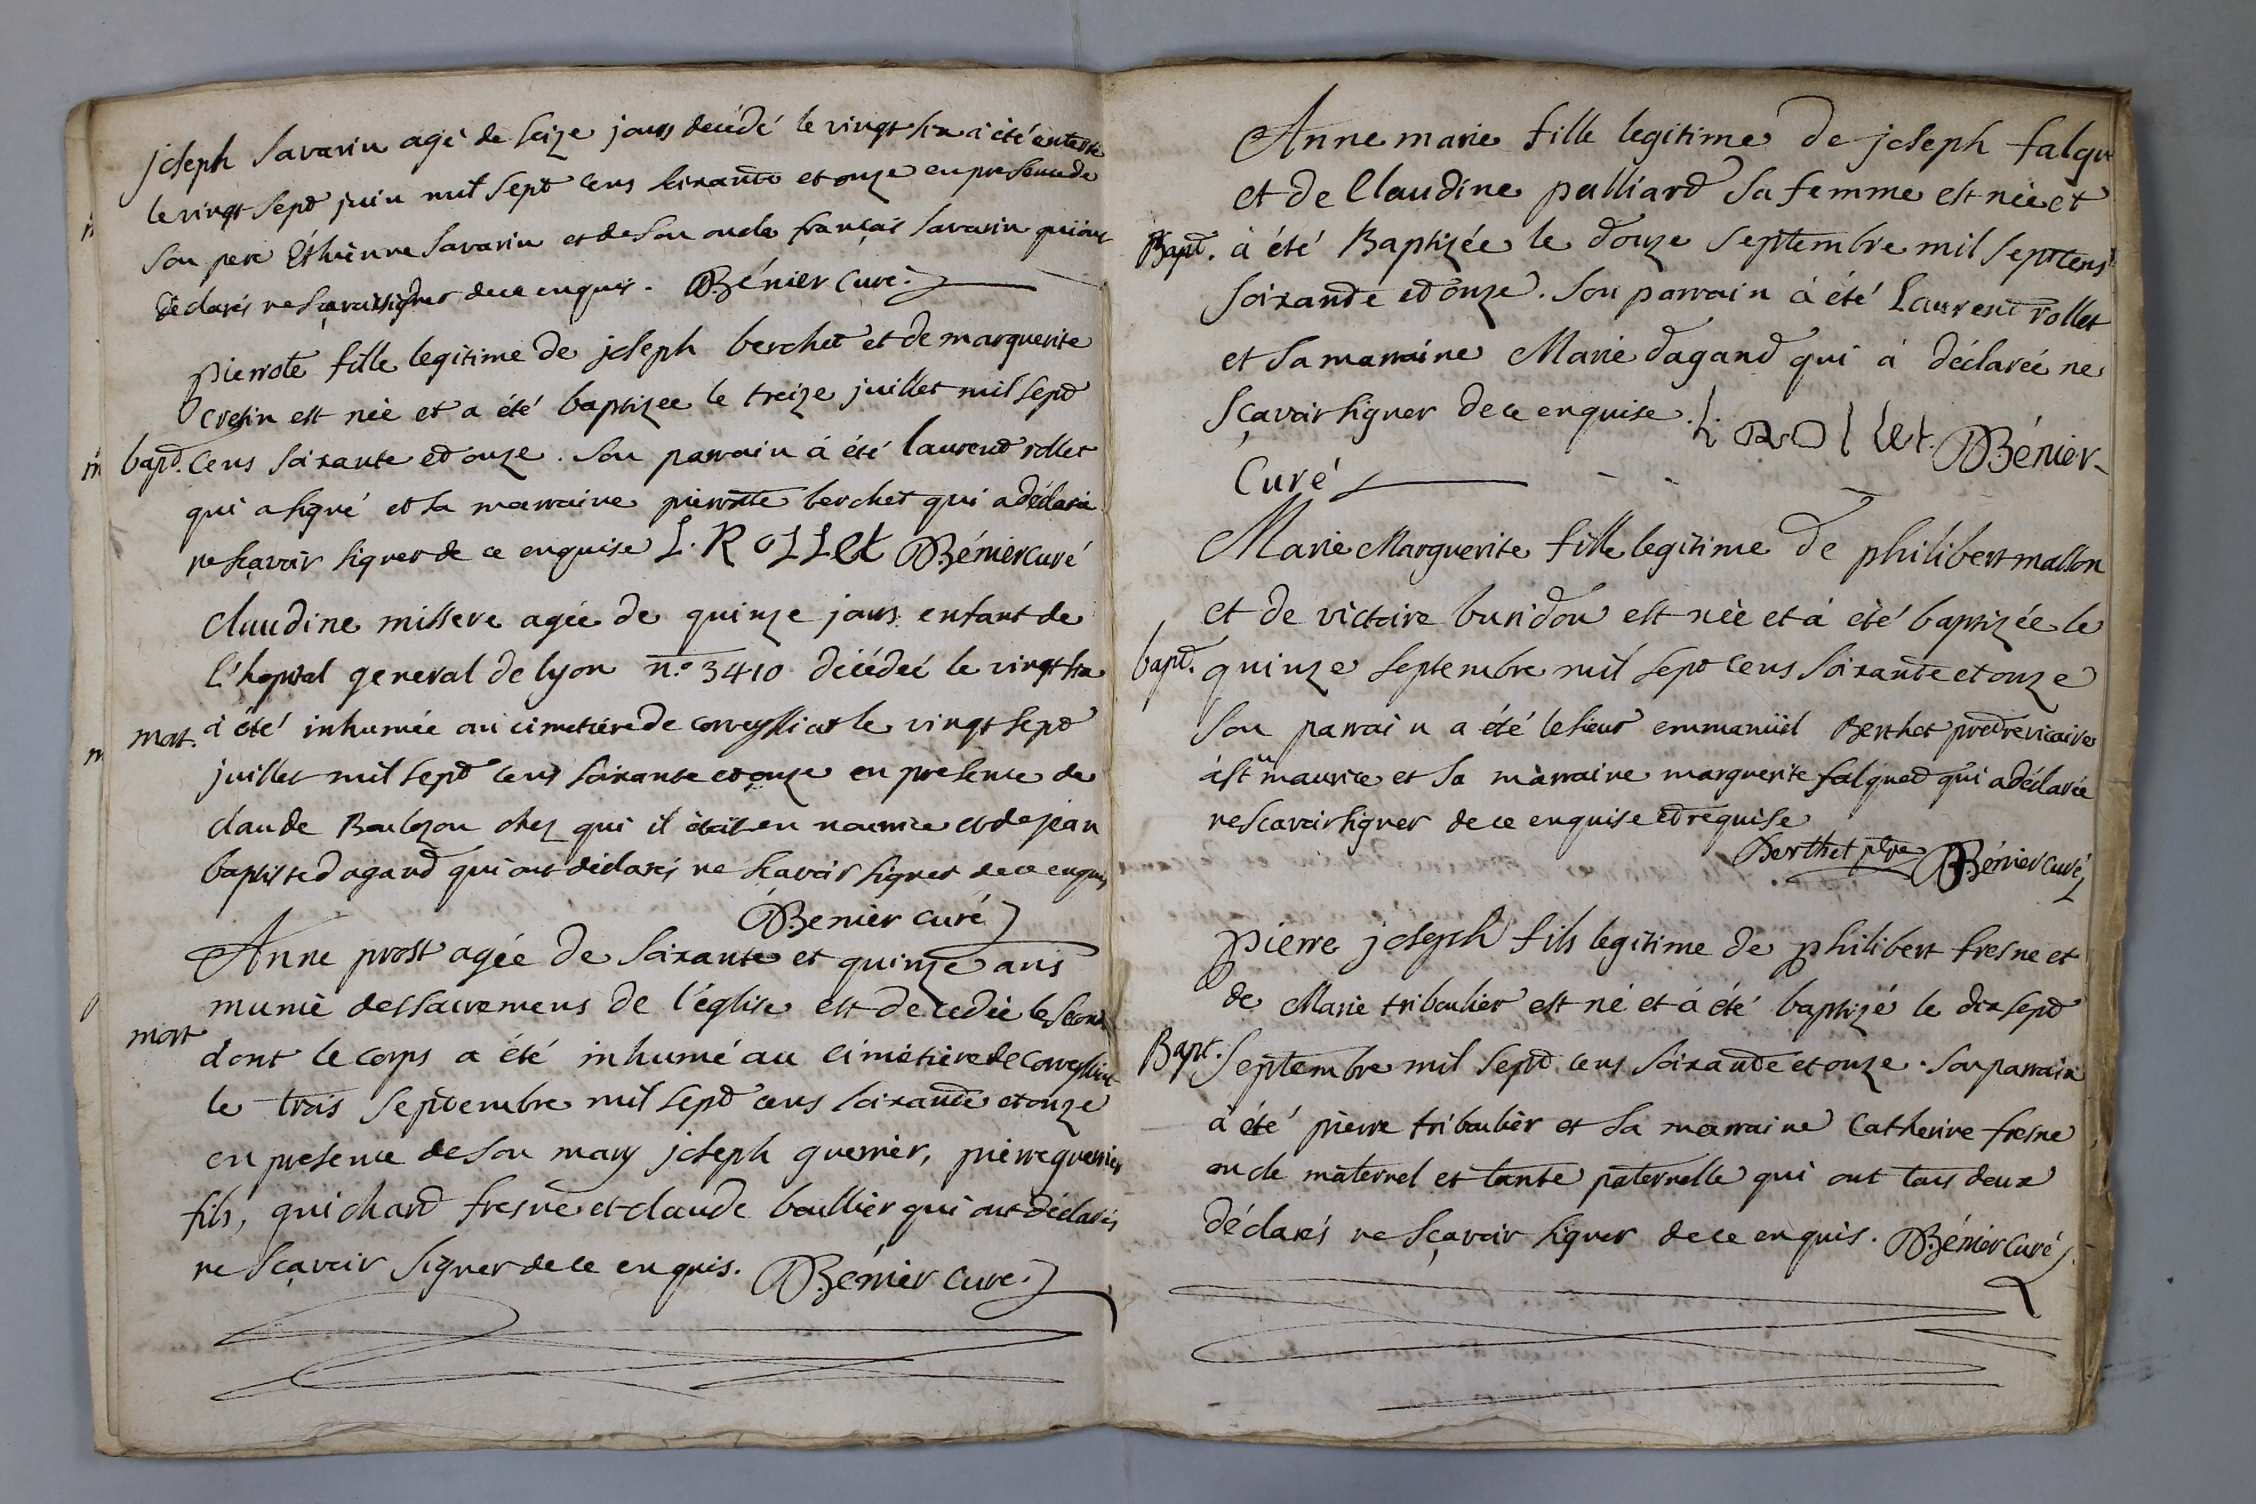 joseph Savarin agé de seize jours decédé le vingt six a été enterré
le vingt sept juin mil sept cens soixante et onze en presence de
son pere Ethienne Savarin et de son oncle françois Savarin qui ont
déclarés ne sçavoir signer de ce enquis. Bénier curé.
pierrote fille legitime de joseph berchet et de marguerite
cretin est née et a été baptizee le treize juillet mil sept
bapt. cens soixante et onze. son parrain à été laurend rollet
qui a signé et sa marraine pierrotte berchet qui a déclaré
ne sçavoir signer de ce enquise L. ROLLet Bénier curé
claudine missere agée de quinze jours enfant de
l'hopital general de lyon n.° 3410 décédeé le vingt six
mort. à été inhumée au cimetiére de corveyssiat le vingt sept
juillet mil sept cens soixante et onze en presence de
claude Boulezon chez qui il était en nourrice et de jean
baptiste dagand qui ont déclarés ne scavoir signer de ce enquis
Benier curé
Anne prost agée de soixante et quinze ans
munie des sacremens de l'église est decedée le second
mort
dont le corps a été inhumé au cimétière de Corveyssiat
le trois septembre mil sept cens soixante et onze
en presence de son mary joseph guerrier, pierre guerrier
fils, guichard fresne et claude boullier qui ont déclarés
ne sçavoir signer de ce enquis. Bénier curé.
Anne marie fille legitime de joseph falque
et de Claudine palliard sa femme est née et
Bapt. à été Baptizée le douze septembre mil sept cens
soixante et onze. son parrain à été Laurent rollet
et sa marraine Marie dagand qui à déclarée ne
sçavoir signer de ce enquise. L. Rollet. Bénier
Curé
Marie Marguerite fille legitime de philibert masson
et de victoire buridon est née et à été baptizée le
bapt. quinze septembre mil sept cens soixante et onze
son parrain a été le sieur emmanüel Berthet pretre vicaire
à st maurice et sa marraine marguerite falqued qui a déclarée
ne scavoir signer de ce enquise et requise
Berthet ptre Bénier curé
pierre joseph fils legitime de philibert fresne et
de Marie triboulier est né et à été baptizé le dix sept
Bapt. septembre mil sept cens soixante et onze. son parrain
à été pierre triboulier et sa marraine Catherine fresne
oncle maternel et tante paternelle qui ont tous deux
déclarés ne sçavoir signer de ce enquis. Bénier curé.